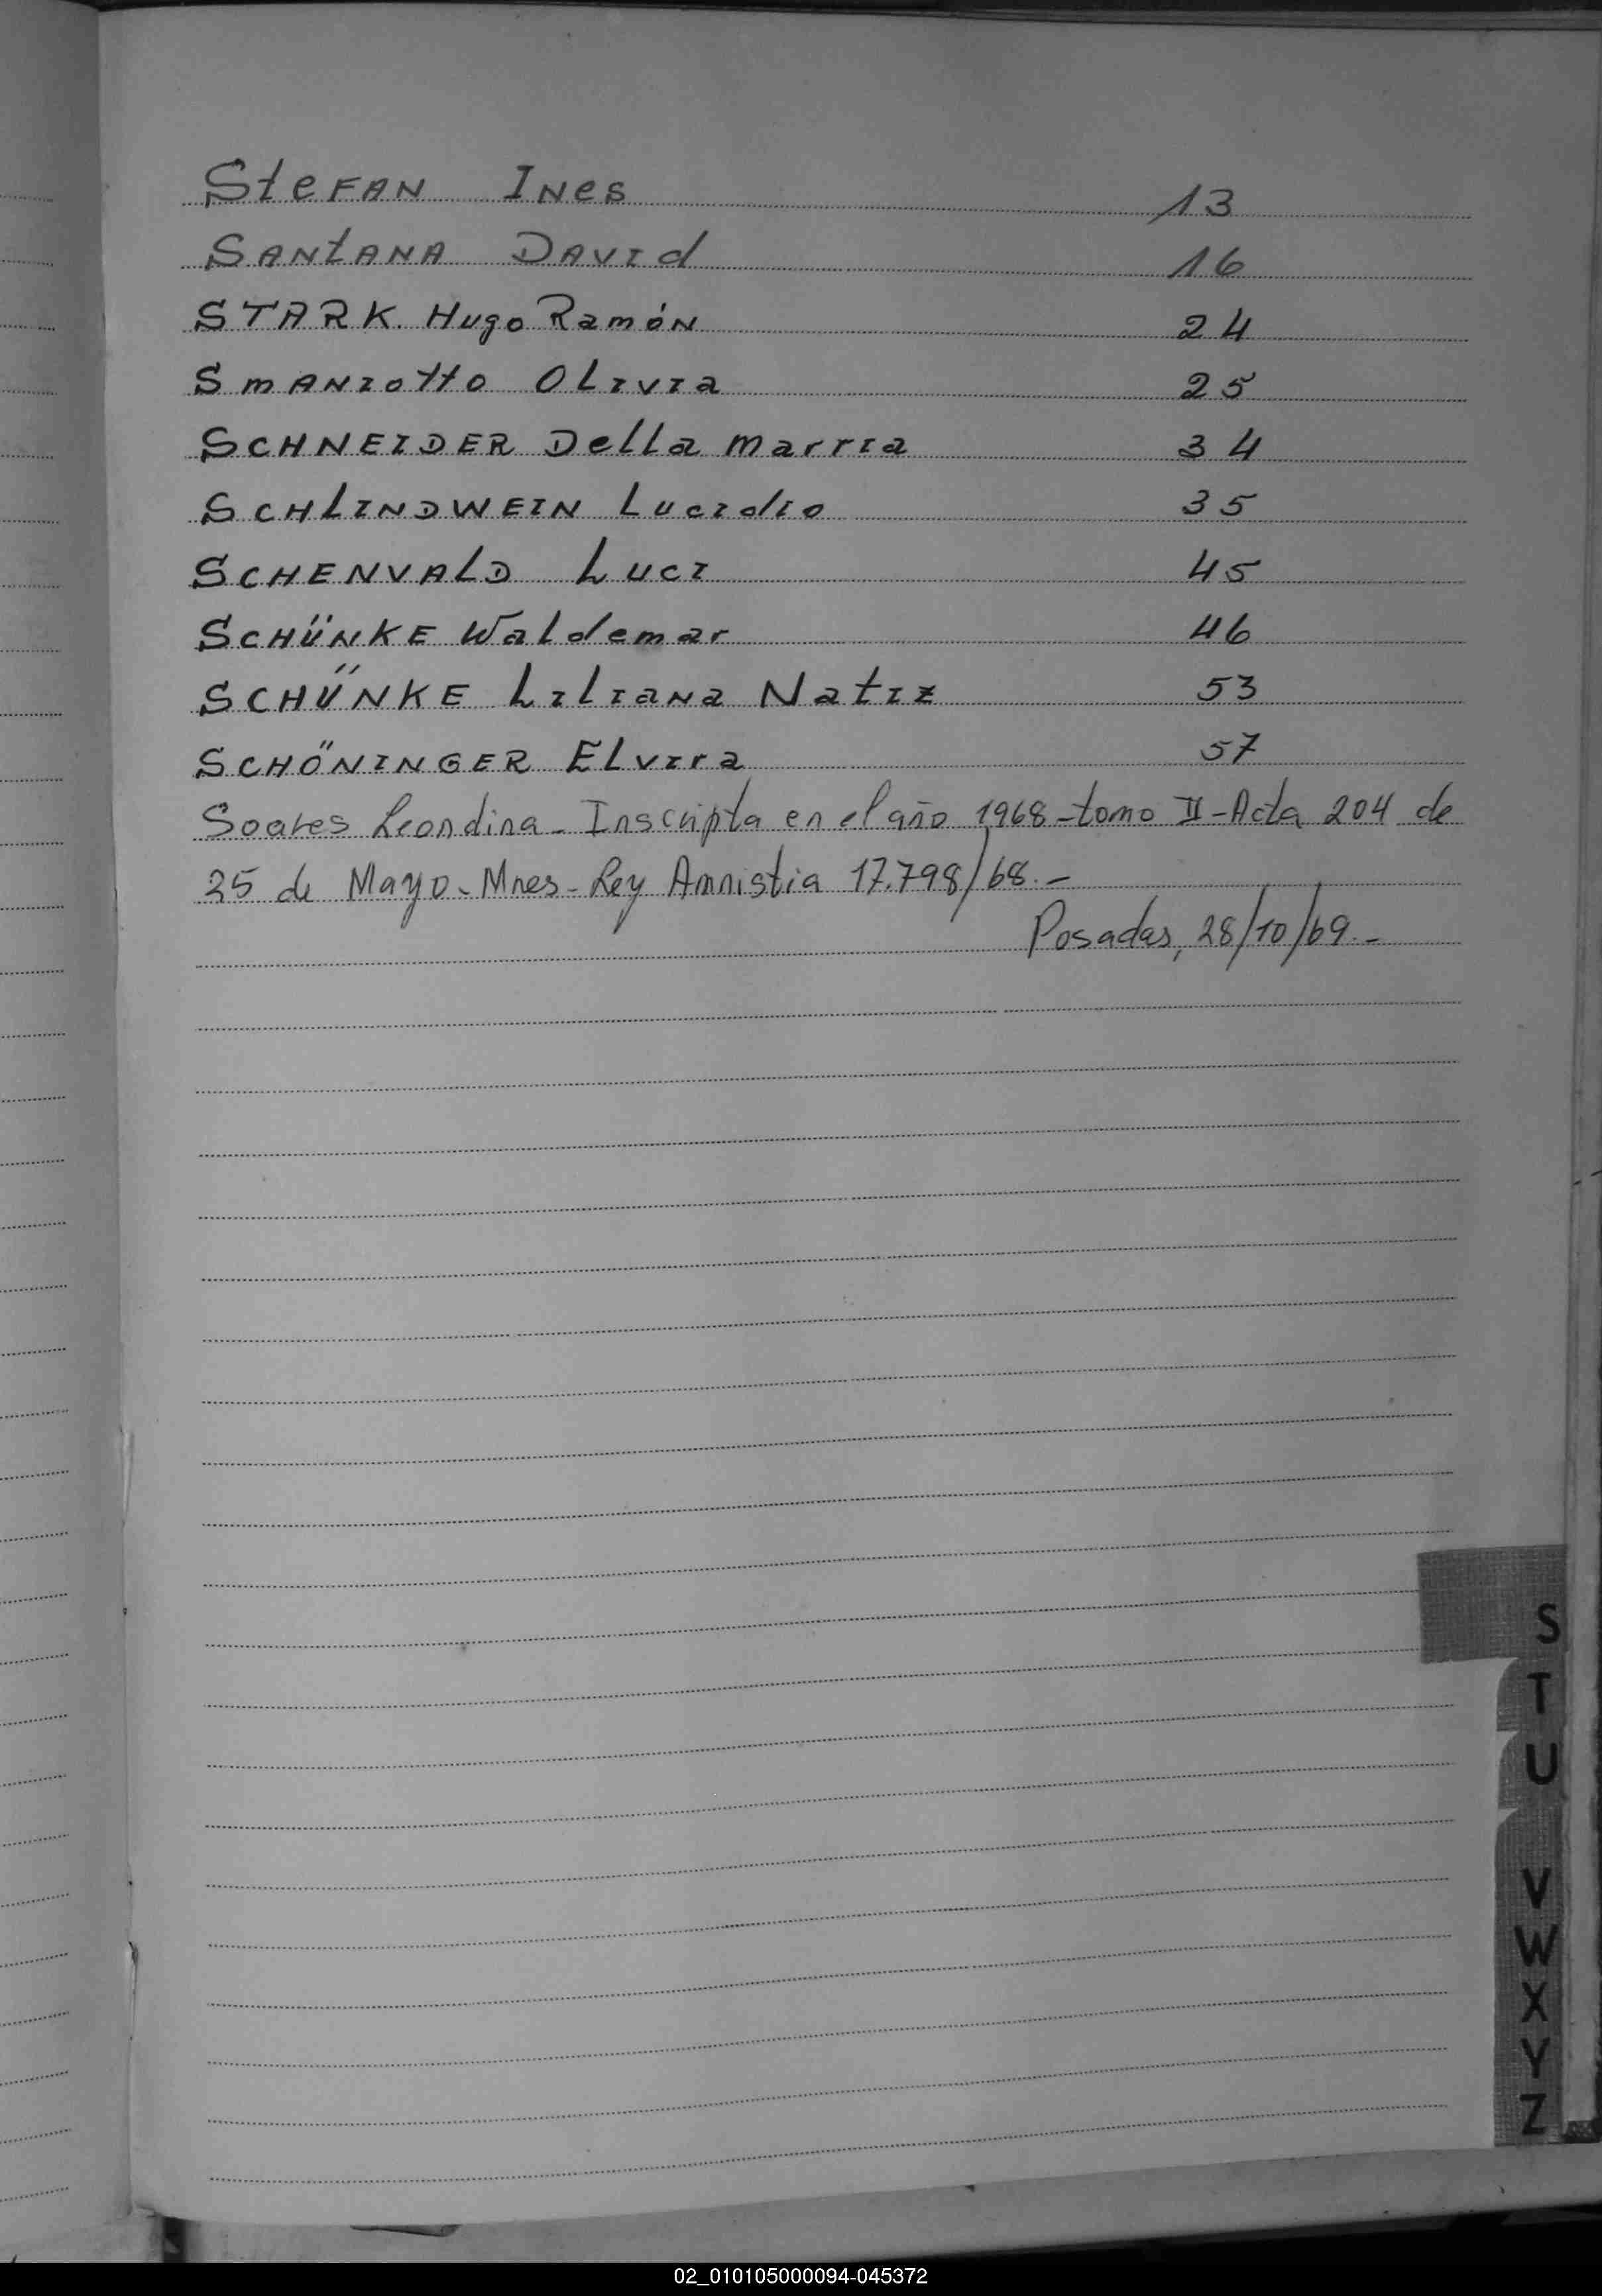 Stefan Ines 13
Santana David 16
STARK Hugo Ramón 24
Smaniotto Olivia 25
SCHNEIDER Della marria 34
SCHLINDWEIN Lucidio 35
SCHENVALD Luci 45
SCHÜNKE Waldemar 46
SCHÜNKE Liliana Natiz 53
SCHÖNINGER Elvira 57
Soares Leondina - Inscripta en el año 1968 - tomo II - Acta 204 de
25 de Mayo - Mnes - Ley Amnistia 17.798/68.-
Posadas, 28/10/69.-
S
T
U
V
W
X
Y
Z
02_010105000094-045372